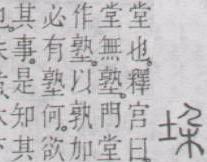 垛
堂也。釋宮曰
堂無塾。門堂
作塾。以孰加
必有塾。何欲
其事。是知其